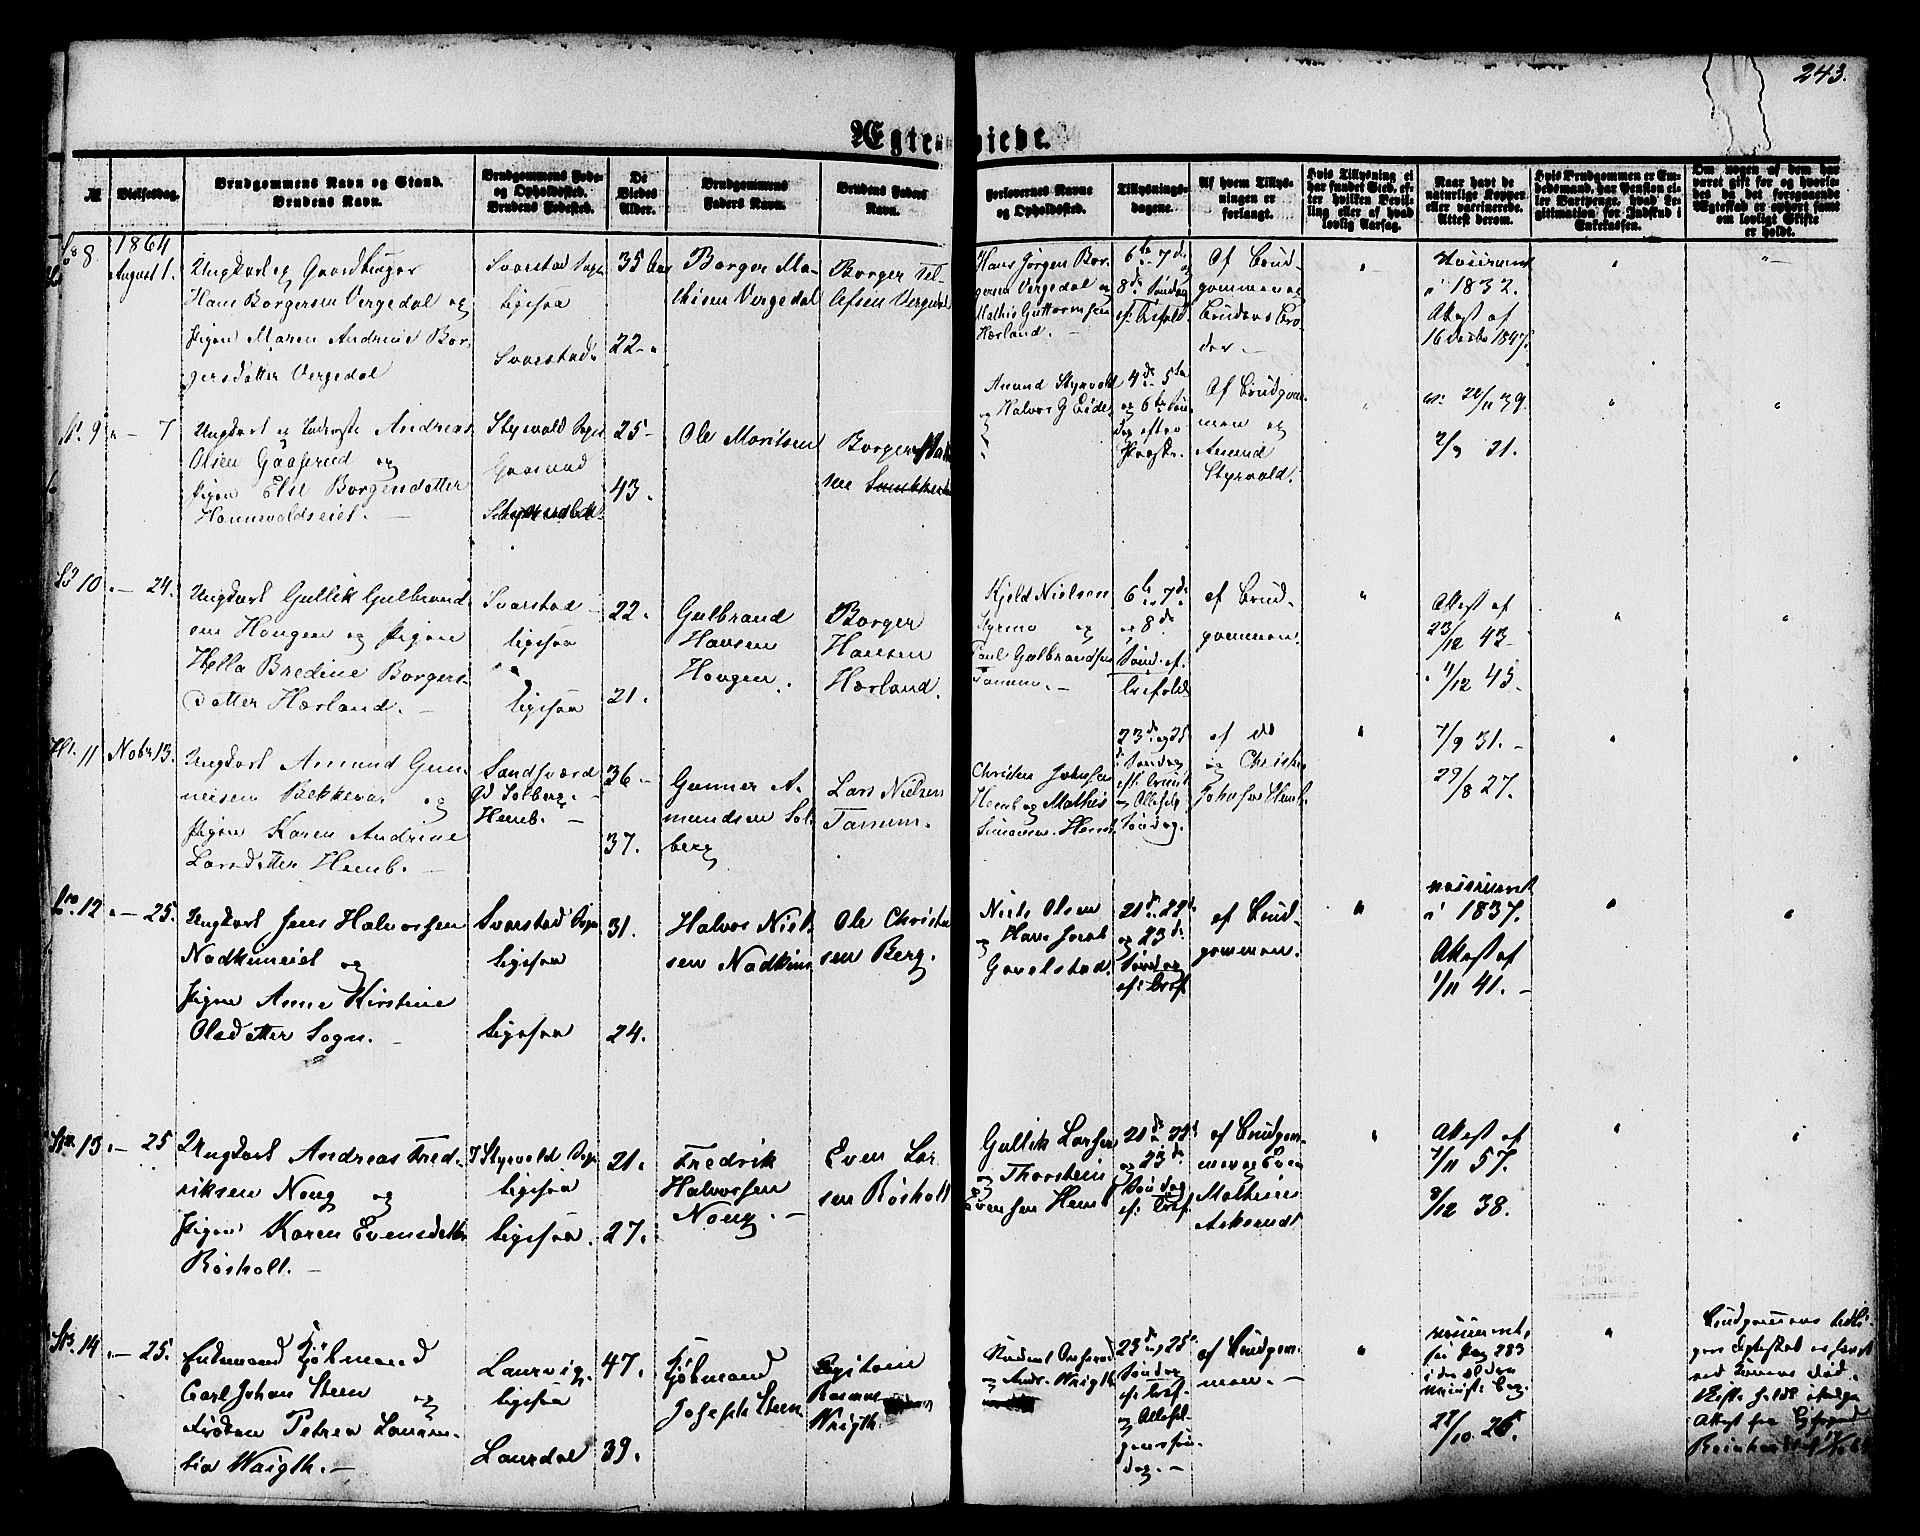 243.
Ægte viede.
№
Vielsesdag.
Brudgommens Navn og Stand.
Brudens Navn.
Brudgommens Føde-
og Opholdssted.
Brudens Fødested.
De
Viedes
Alder.
Brudgommens
Faders Navn.
Brudens Faders
Navn.
Forlovernes Navne
og Opholdssted.
Tillysnings-
dagene.
Af hvem Tillys-
ningen er
forlangt.
Hvis Tillysning ei
har fundet Sted, ef-
ter hvilken Bevil-
ling eller af hvad
lovlig Aarsag.
Naar havt de
naturlige Kopper
eller vaccinerede.
Attest derom.
Hvis Brudgommen er Em-
bedsmand, har Pension el-
ler Vartpenge, hvad Le-
gitimation for Indskud i
Enkekassen.
Om nogen af dem har
været gift før og hvorle-
des da det foregaaende
Ægteskab er ophørt samt
om lovligt Skifte
er holdt.
8
1864
August 1.
Ungkarl og Gaardbruger
Hans Borgersen Vergedal og
Pigen Maren Andrine Bor-
gersdatter Vergedal
Svarstad Sogn
ligesaa
Svarstad
35 Aar
22
Borger Ma-
thisen Vergedal
Borger Tel-
lefsen Vergedal
Hans Jørgen Bor-
gersen Vergedal og
Mathis Guttormsen
Hærland.
6te 7de og
8de Søndag
ef. Trefold.
Af Brud-
gommen og
Brudens Bro-
der.
Vaccineret
i 1832.
Attest af
16 Decbr 1847.
9
7
Ungkarl og Inderste Andreas
Olsen Gaaserud og
Pigen Else Borgersdatter
Hannevoldseiet.
Styrvold Sogn
Gaaserud
25
43.
Ole Moritsen
Borger
Amund Styrvold
og Halvor G Eide
4de 5te
og 6te Søn-
dag efter
Paaske.
Af Brudgom-
men og
Amund
Styrvold.
39.
21.
10
24.
Ungkarl Gullik Gulbrand-
sen Hougen og Pigen
Hella Bredine Borgers-
datter Hærland.
Svarstad
ligesaa
ligesaa
22.
21.
Gulbrand
Hansen
Hougen.
Borger
Hansen
Hærland.
Kjeld Nielsen
Styrmo og
Paul Gulbrandsen
Tamm.
6te 7de
og 8de
Sønd. ef.
Trefold.
af Brud-
gommen.
Attest af
23/12 43
11/12 45.
11
Nobr 13.
Ungkarl Amund Gun-
nersen Bekkevar og
Pigen Karen Andrine
Larsdatter Hemb.
Sandsværd
Gd Solberg.
Hemb.
36
37.
Gunner A-
mundsen Sol-
berg
Lars Nielsen
Tamm.
Christen Johnsen
Hemb og Mathis
Simonsen Hemb.
23de og 25
Søndag
ef. Trinit
og Allehelg
Søndag.
af do
og Christen
Johnsen Hemb.
7/9 31.
29/8 27.
12
25.
Ungkarl Jens Halvorsen
Nadkimeiet og
Pigen Anne Kirstine
Olsdatter Sogn.
Svarstad Sogn
ligesaa
ligesaa
31.
24.
Halvor Niel-
sen Nadkim
Ole Christen
sen Berg.
Niels Olsen
og Hans Jacob
Gavelstad.
21de 22de
og 23de
Søndag
ef: Tref.
af Brud-
gommen.
vaccineret
i 1837.
Attest af
1/11 41.
13
25
Ungkarl Andreas Fred-
riksen Noug og
Pigen Karen Evensdatter
Røsholt.
I Styrvold Sogn
ligesaa
ligesaa.
21.
27.
Fredrik
Halvorsen
Noug.
Even Lar-
sen Røsholt
Gullik Larsen
og Thorstein
Evensen Hemb
21de 22de
og 23de
Søndag
ef: Tref.
af Brudgom-
men og Even
Mathisen
Askerudt
Attest af
7/11 57.
8/12 38.
14
25.
Enkemand Kjøbmand
Carl Johan Steen og
Frøken Petrea Lauren-
tia Wrigth.
Laurvig.
ligesaa
Laurdal
47.
39.
Kjøbmand
Joseph Steen
Capitain
Rasmus
Wrigth.
og Andr. Wrigth
23de og 25de
Søndag
ef: Tref.
og Allehel-
genssøn-
dag.
af Brudgom-
men.
vaccineret,
see Pag 283
i den ældre
minist. bog.
22/10 26.
Brudgommens tidli-
gere Ægteskab er hævet
ved Konens Død.